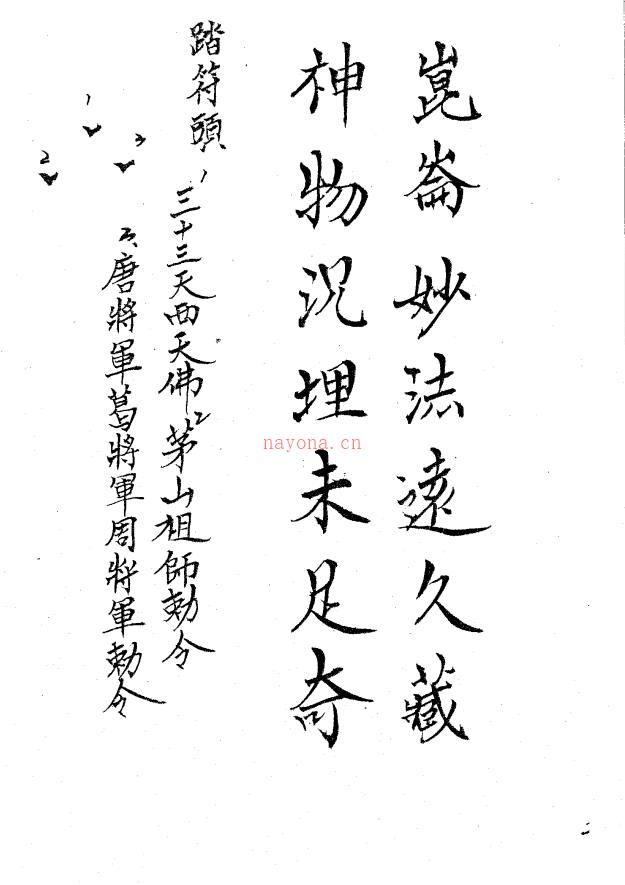 崑崙妙法遠久藏
神物況埋未足奇
踏符頭
1三十三天西天佛2茅山祖師勅令
3唐將軍葛將軍周將軍勅令
1
2
3
nayona.cn
二